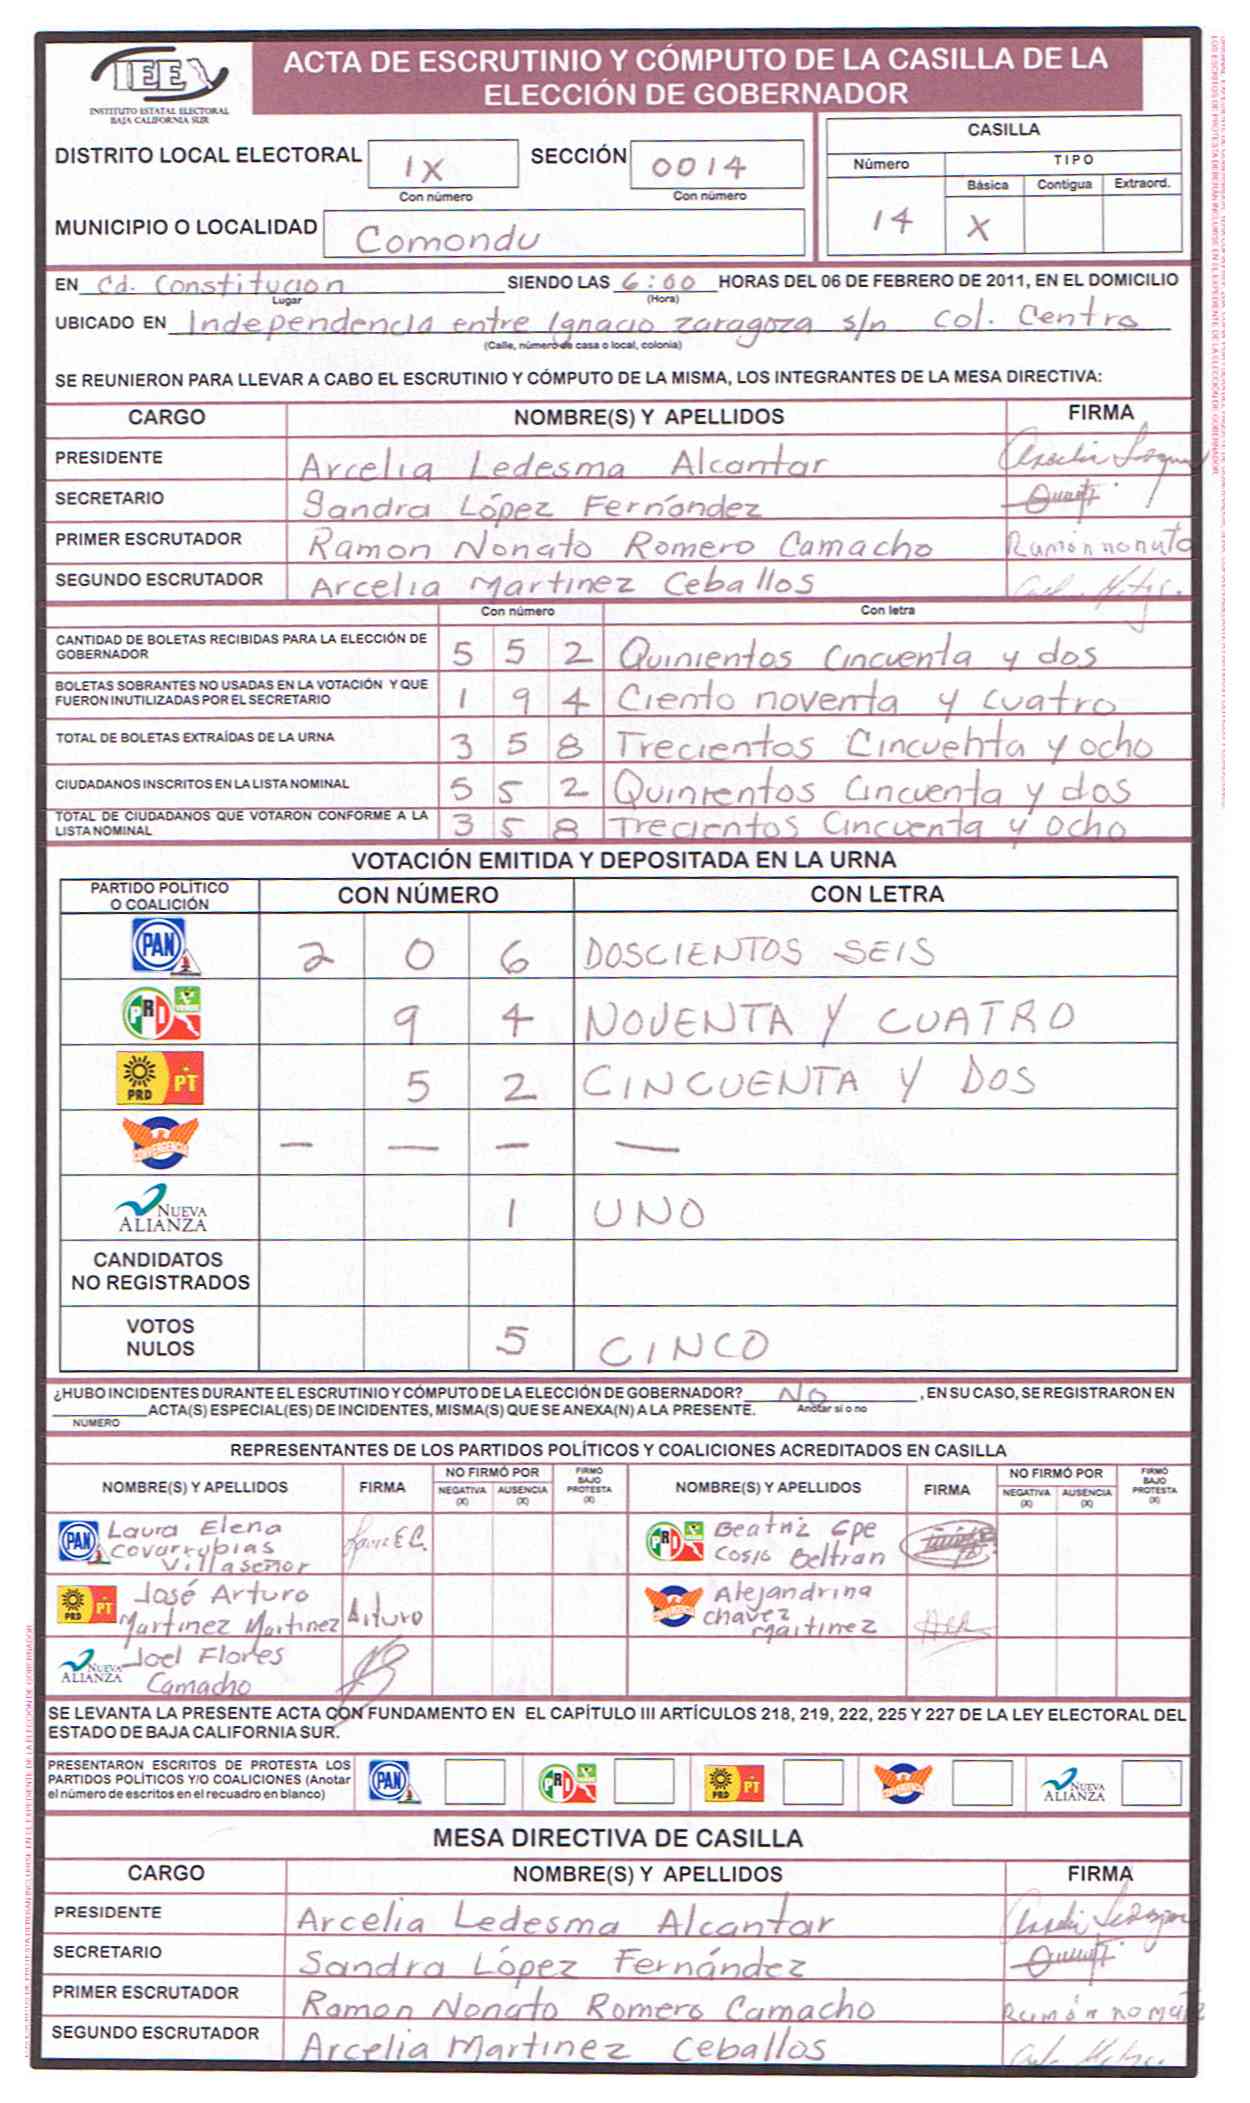 IEE
INSTITUTO ESTATAL ELECTORAL
BAJA CALIFORNIA SUR
ACTA DE ESCRUTINIO Y CÓMPUTO DE LA CASILLA DE LA
ELECCIÓN DE GOBERNADOR
DISTRITO LOCAL ELECTORAL IX SECCIÓN 0014
Con número Con número
MUNICIPIO O LOCALIDAD Comondu
CASILLA
Número TIPO
Básica Contigua Extraord.
14 X
EN Cd. Constitucion SIENDO LAS 6:00 HORAS DEL 06 DE FEBRERO DE 2011, EN EL DOMICILIO
Lugar (Hora)
UBICADO EN Independencia entre Ignacio zaragoza s/n col. Centro
(Calle, número de casa o local, colonia)
SE REUNIERON PARA LLEVAR A CABO EL ESCRUTINIO Y CÓMPUTO DE LA MISMA, LOS INTEGRANTES DE LA MESA DIRECTIVA:
CARGO NOMBRE(S) Y APELLIDOS FIRMA
PRESIDENTE Arcelia Ledesma Alcantar
SECRETARIO Sandra López Fernández
PRIMER ESCRUTADOR Ramon Nonato Romero Camacho Ramón nonato
SEGUNDO ESCRUTADOR Arcelia Martinez Ceballos
Con número Con letra
CANTIDAD DE BOLETAS RECIBIDAS PARA LA ELECCIÓN DE
GOBERNADOR 5 5 2 Quinientos Cincuenta y dos
BOLETAS SOBRANTES NO USADAS EN LA VOTACIÓN Y QUE
FUERON INUTILIZADAS POR EL SECRETARIO 1 9 4 Ciento noventa y cuatro
TOTAL DE BOLETAS EXTRAÍDAS DE LA URNA 3 5 8 Trecientos Cincuenta y ocho
CIUDADANOS INSCRITOS EN LA LISTA NOMINAL 5 5 2 Quinientos Cincuenta y dos
TOTAL DE CIUDADANOS QUE VOTARON CONFORME A LA
LISTA NOMINAL 3 5 8 Trecientos Cincuenta y ocho
VOTACIÓN EMITIDA Y DEPOSITADA EN LA URNA
PARTIDO POLÍTICO
O COALICIÓN CON NÚMERO CON LETRA
PAN 2 0 6 DOSCIENTOS SEIS
PRI VERDE 9 4 NOVENTA Y CUATRO
PRD PT 5 2 CINCUENTA Y DOS
CONVERGENCIA — — — —
NUEVA ALIANZA 1 UNO
CANDIDATOS
NO REGISTRADOS
VOTOS
NULOS 5 CINCO
¿HUBO INCIDENTES DURANTE EL ESCRUTINIO Y CÓMPUTO DE LA ELECCIÓN DE GOBERNADOR? No , EN SU CASO, SE REGISTRARON EN
ACTA(S) ESPECIAL(ES) DE INCIDENTES, MISMA(S) QUE SE ANEXA(N) A LA PRESENTE. Anotar si o no
NUMERO
REPRESENTANTES DE LOS PARTIDOS POLÍTICOS Y COALICIONES ACREDITADOS EN CASILLA
NOMBRE(S) Y APELLIDOS FIRMA NO FIRMÓ POR NEGATIVA (X) AUSENCIA (X) FIRMÓ BAJO PROTESTA (X) NOMBRE(S) Y APELLIDOS FIRMA NO FIRMÓ POR NEGATIVA (X) AUSENCIA (X) FIRMÓ BAJO PROTESTA (X)
PAN Laura Elena
Covarrubias
Villaseñor
PRI Beatriz Gpe
Cosio Beltran
PRD PT José Arturo
Martinez Martinez Arturo
CONVERGENCIA Alejandrina
Chavez
Martinez
NUEVA ALIANZA Joel Flores
Camacho
SE LEVANTA LA PRESENTE ACTA CON FUNDAMENTO EN EL CAPÍTULO III ARTÍCULOS 218, 219, 222, 225 Y 227 DE LA LEY ELECTORAL DEL
ESTADO DE BAJA CALIFORNIA SUR.
PRESENTARON ESCRITOS DE PROTESTA LOS
PARTIDOS POLÍTICOS Y/O COALICIONES (Anotar
el número de escritos en el recuadro en blanco)
PAN PRI PRD PT CONVERGENCIA NUEVA ALIANZA
MESA DIRECTIVA DE CASILLA
CARGO NOMBRE(S) Y APELLIDOS FIRMA
PRESIDENTE Arcelia Ledesma Alcantar
SECRETARIO Sandra López Fernández
PRIMER ESCRUTADOR Ramon Nonato Romero Camacho
SEGUNDO ESCRUTADOR Arcelia Martinez Ceballos